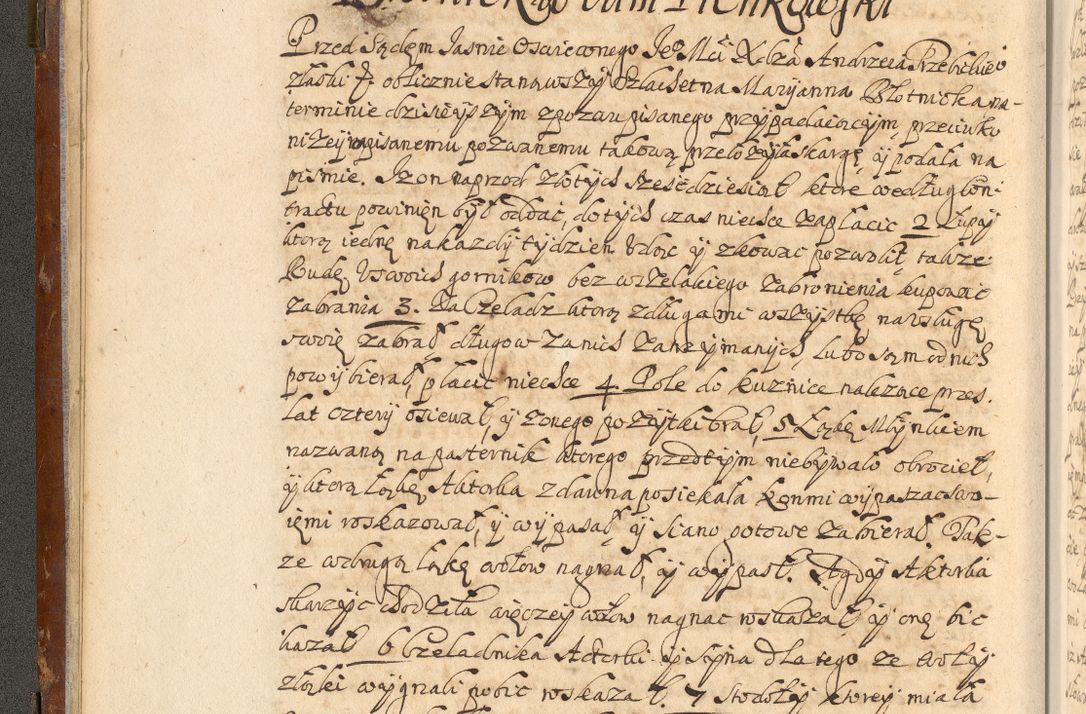 Przed Sądem Jasnie Oswieconego Je° Mci X-bza Andrzeia
z łaski &. oblicznie stanąwszy Szlachetna Maryanna Błotnicka na-
terminie dzisieyszym z pozwu pisanego przypadaiącym, przeciwko
niżey napisanemu pozwanemu takową przełozyła skargę, y podała na
pismie. Iż on naprzod złotych szescdziesiąt ktore według kon-
tractu powinien był oddać, do tych czas niechce zapłacic 2 Łupy
ktorą iednę na kazdy tydzien y zkować pozwolił, także
Rudę U swoich gornikow bez wszelakiego zabronienia kupowac
zabrania 3. Za Czeladz ktorą z długami wszystkę, na usługę
swoię zabrał, długow za nich zatrzymanych, lubo sam od nich
powybierał, płacic niechce 4 Pole do kuznice nalezące przes.
lat cztery osiewał, y z onego pozytki brał, 5 Łąkę Młynkiem
nazwaną na pasternik ktorego przedtym niebywało obrocieł,
y ktorą łąkę Aktorka z dawna posiekała konmi wypaszac swo-
iemi roskazował, y wypasał, y siano gotowe zabierał. Tak-
ze w drugą łąkę wołow nagnał, y wypasł. A gdy Aktorka
skarzyc chodziła więczey wołow nagnac roskazał y onę bic
kazał 6 Czeladnika Aktorki y syna dla tego ze woły
z łąki wygnali pobic roskazał. 7 Stodoły ktorey miała